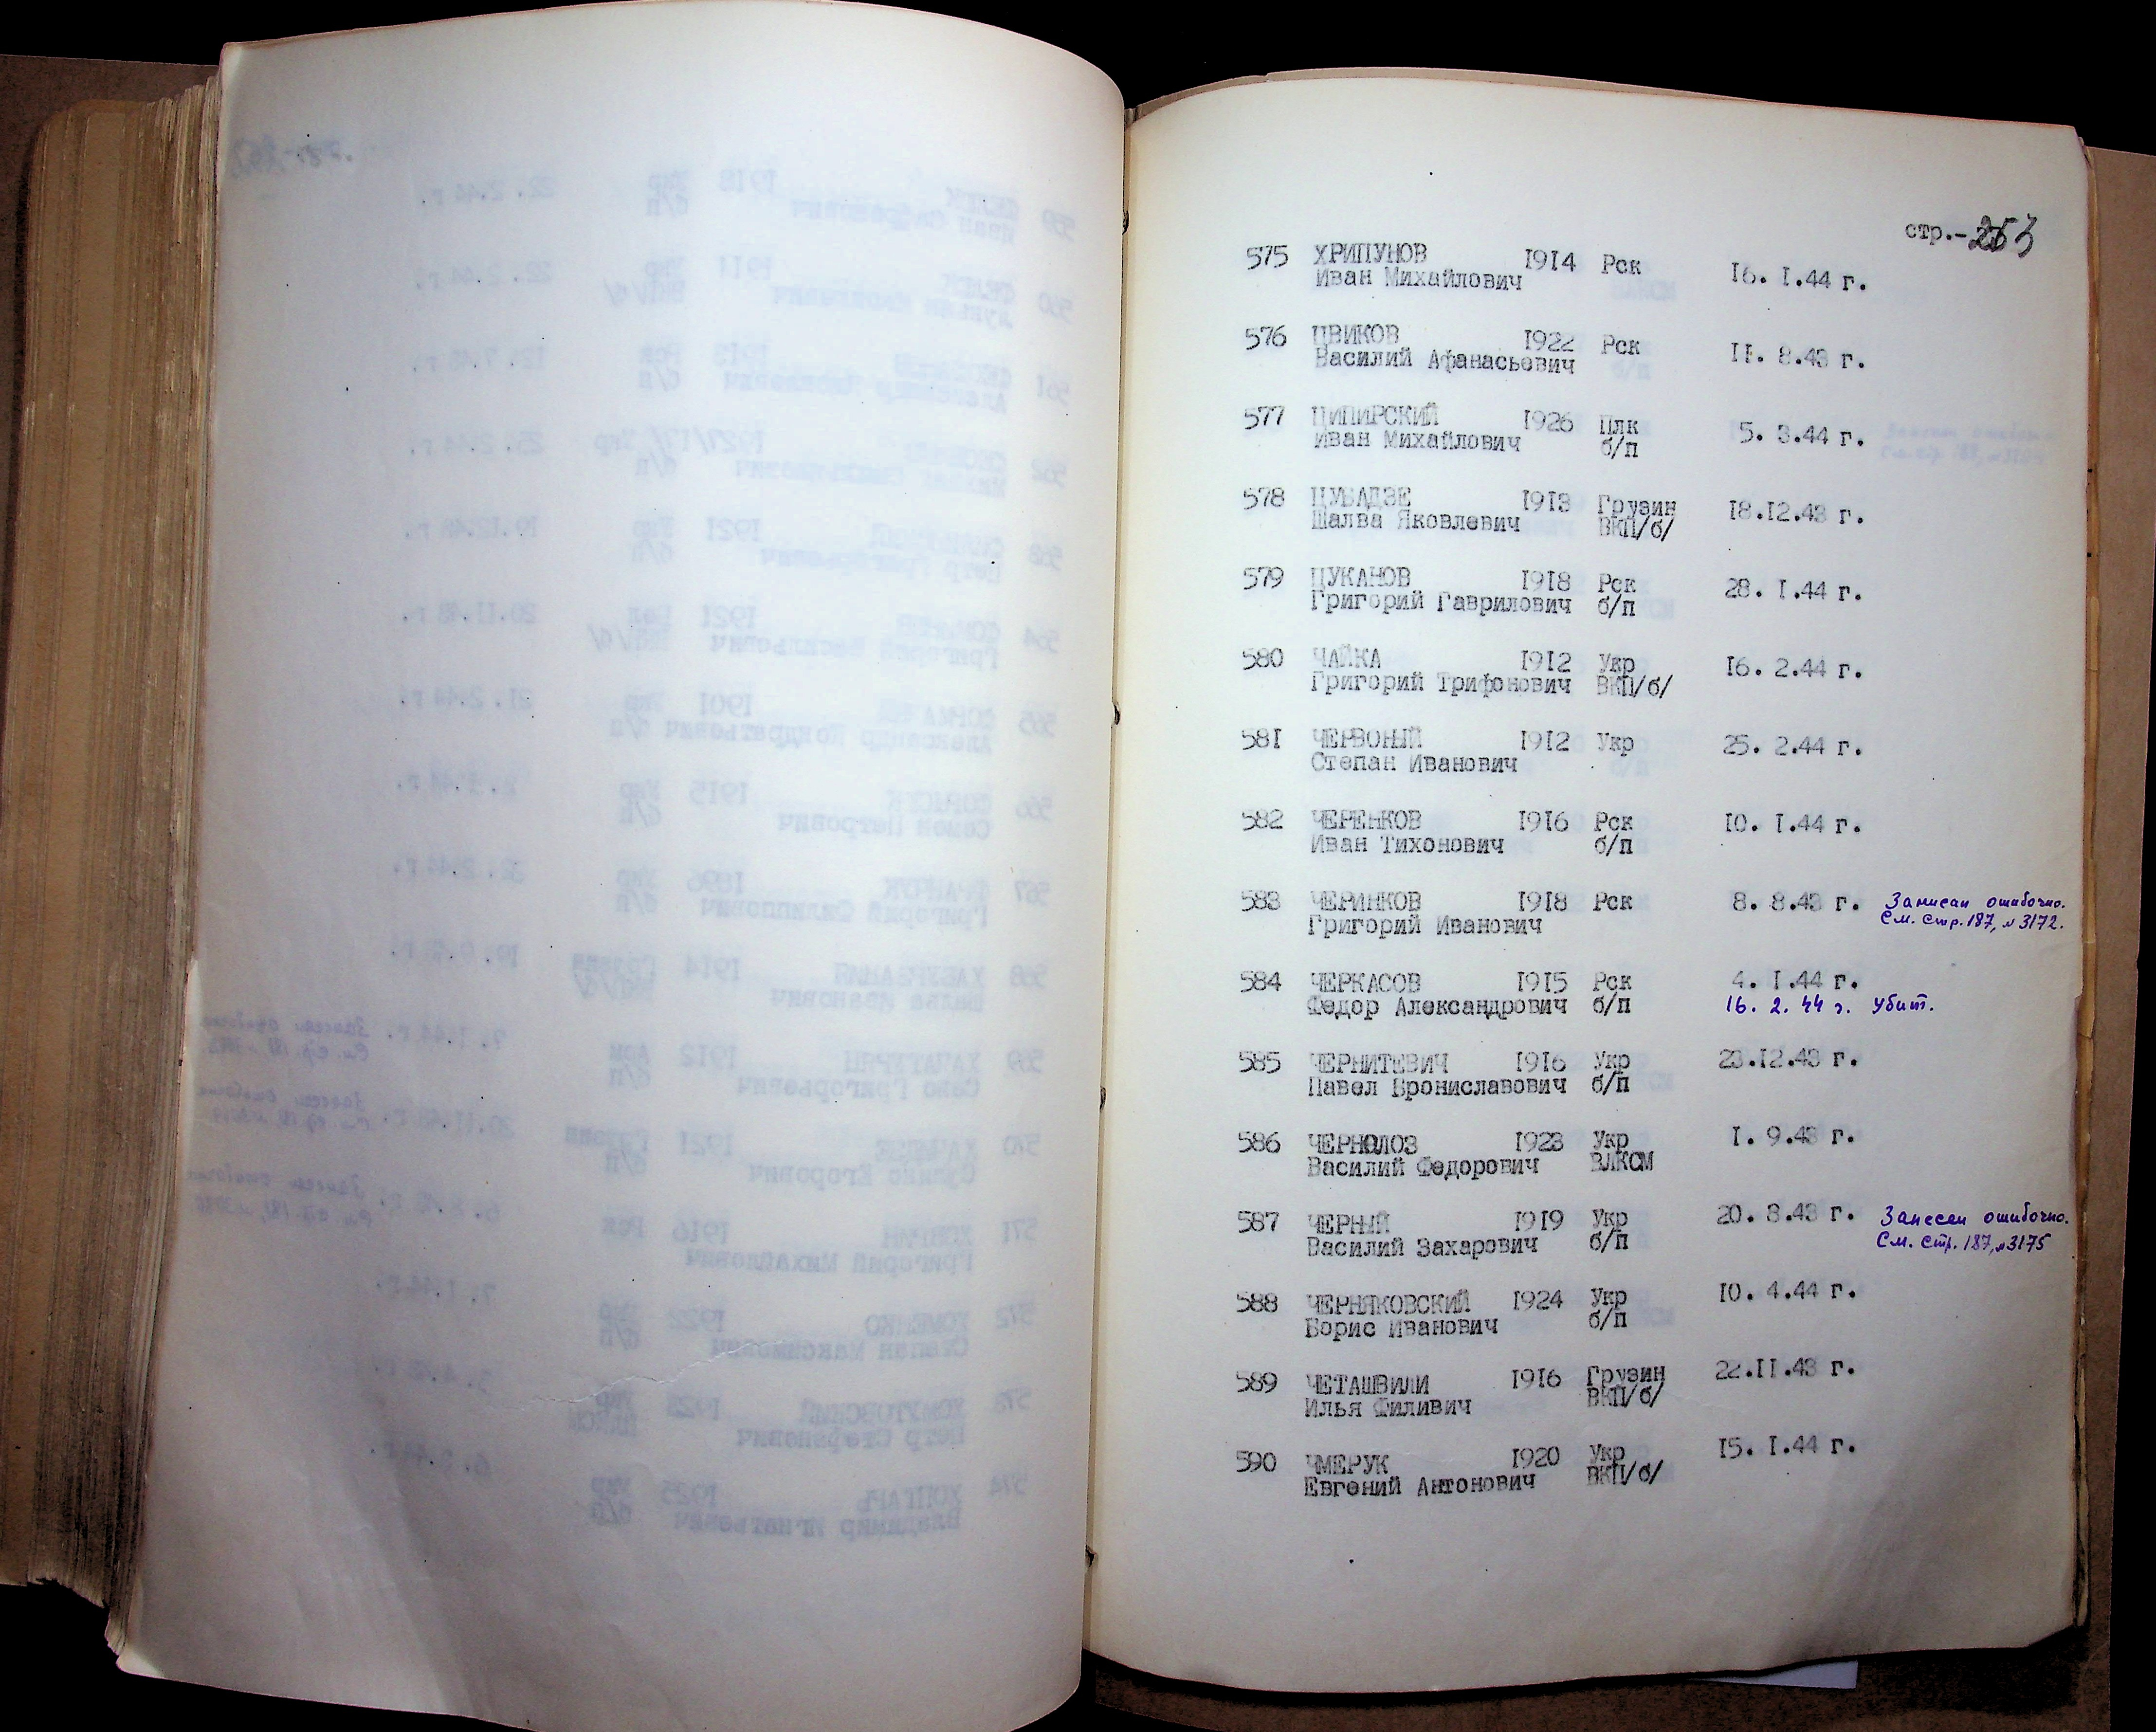 стр.-253
575 ХРИПУНОВ 1914 Рск 16. 1.44 г.
Иван Михайлович
576 ЦВИКОВ 1922 Рск 11. 8.43 г.
Василий Афанасьевич
577 ЦИПИРСКИЙ 1926 Плк 5. 3.44 г.
Иван Михайлович б/п
578 ЦУБАДЗЕ 1913 Грузин 18.12.43 г.
Шалва Яковлевич ВКП/б/
579 ЦУКАНОВ 1918 Рск 28. 1.44 г.
Григорий Гаврилович б/п
580 ЧАЙКА 1912 Укр 16. 2.44 г.
Григорий Трифонович ВКП/б/
581 ЧЕРВОНЫЙ 1912 Укр 25. 2.44 г.
Степан Иванович
582 ЧЕРЕНКОВ 1916 Рск 10. 1.44 г.
Иван Тихонович б/п
583 ЧЕРИНКОВ 1918 Рск 8. 8.43 г. Записан ошибочно.
Григорий Иванович См. стр. 187, № 3172.
584 ЧЕРКАСОВ 1915 Рск 4. 1.44 г.
Федор Александрович б/п 16. 2. 44 г. Убит.
585 ЧЕРНИТЕВИЧ 1916 Укр 23.12.43 г.
Павел Брониславович б/п
586 ЧЕРНОЛОЗ 1923 Укр 1. 9.43 г.
Василий Федорович ВЛКСМ
587 ЧЕРНЫЙ 1919 Укр 20. 8.43 г. Занесен ошибочно.
Василий Захарович б/п См. стр. 187, №3175
588 ЧЕРНЯКОВСКИЙ 1924 Укр 10. 4.44 г.
Борис Иванович б/п
589 ЧЕТАШВИЛИ 1916 Грузин 22.11.43 г.
Илья Филивич ВКП/б/
590 ЧМЕРУК 1920 Укр 15. 1.44 г.
Евгений Антонович ВКП/б/